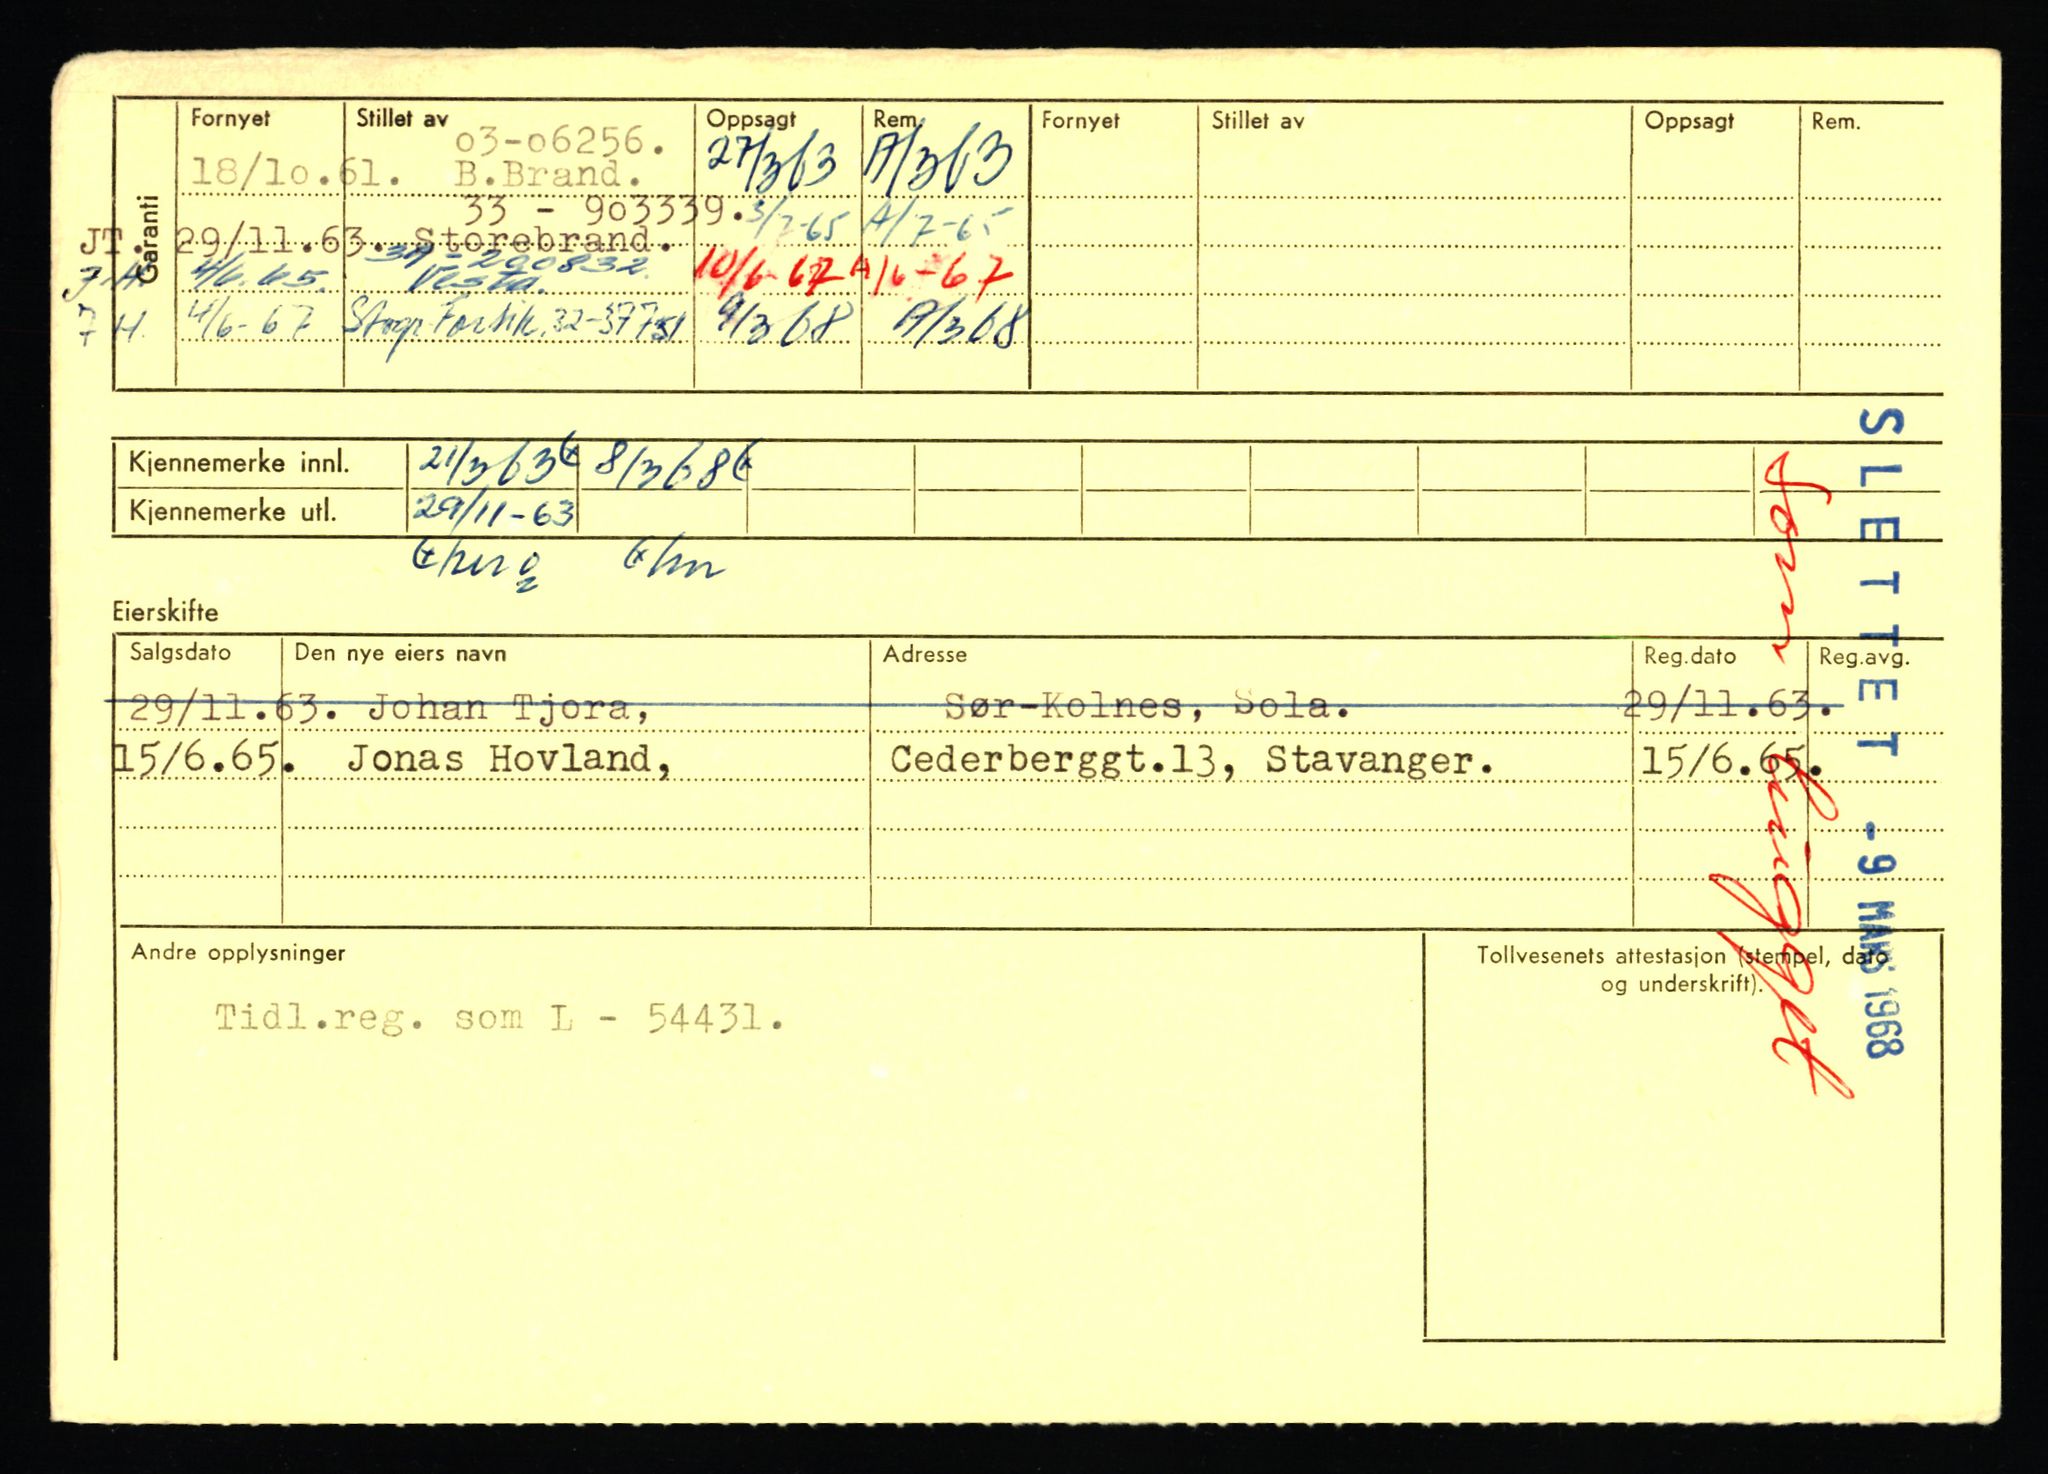 Garanti
Fornyet Stillet av Oppsagt Rem. Fornyet Stillet av Oppsagt Rem.
o3-o6256.
18/1o.61. B.Brand. 27/3 63 A/3 63
33 - 9o3339. 3/7-65 A/7-65
JT. 29/11.63. Storebrand.
39-290832.
J.H. 4/6.65. Vesta. 10/6-67 A/6-67
J H. 4/6-67 9/3 68 A/3 68
Kjennemerke innl. 21/3 63 8/3 68
Kjennemerke utl. 29/11-63
Eierskifte
Salgsdato Den nye eiers navn Adresse Reg.dato Reg.avg.
29/11.63. Johan Tjora, Sør-Kolnes, Sola. 29/11.63.
15/6.65. Jonas Hovland, Cederberggt.13, Stavanger. 15/6.65.
Andre opplysninger
Tidl.reg. som L - 54431.
Tollvesenets attestasjon (stempel, dato
og underskrift).
SLETTET - 9 MARS 1968
Som utgått